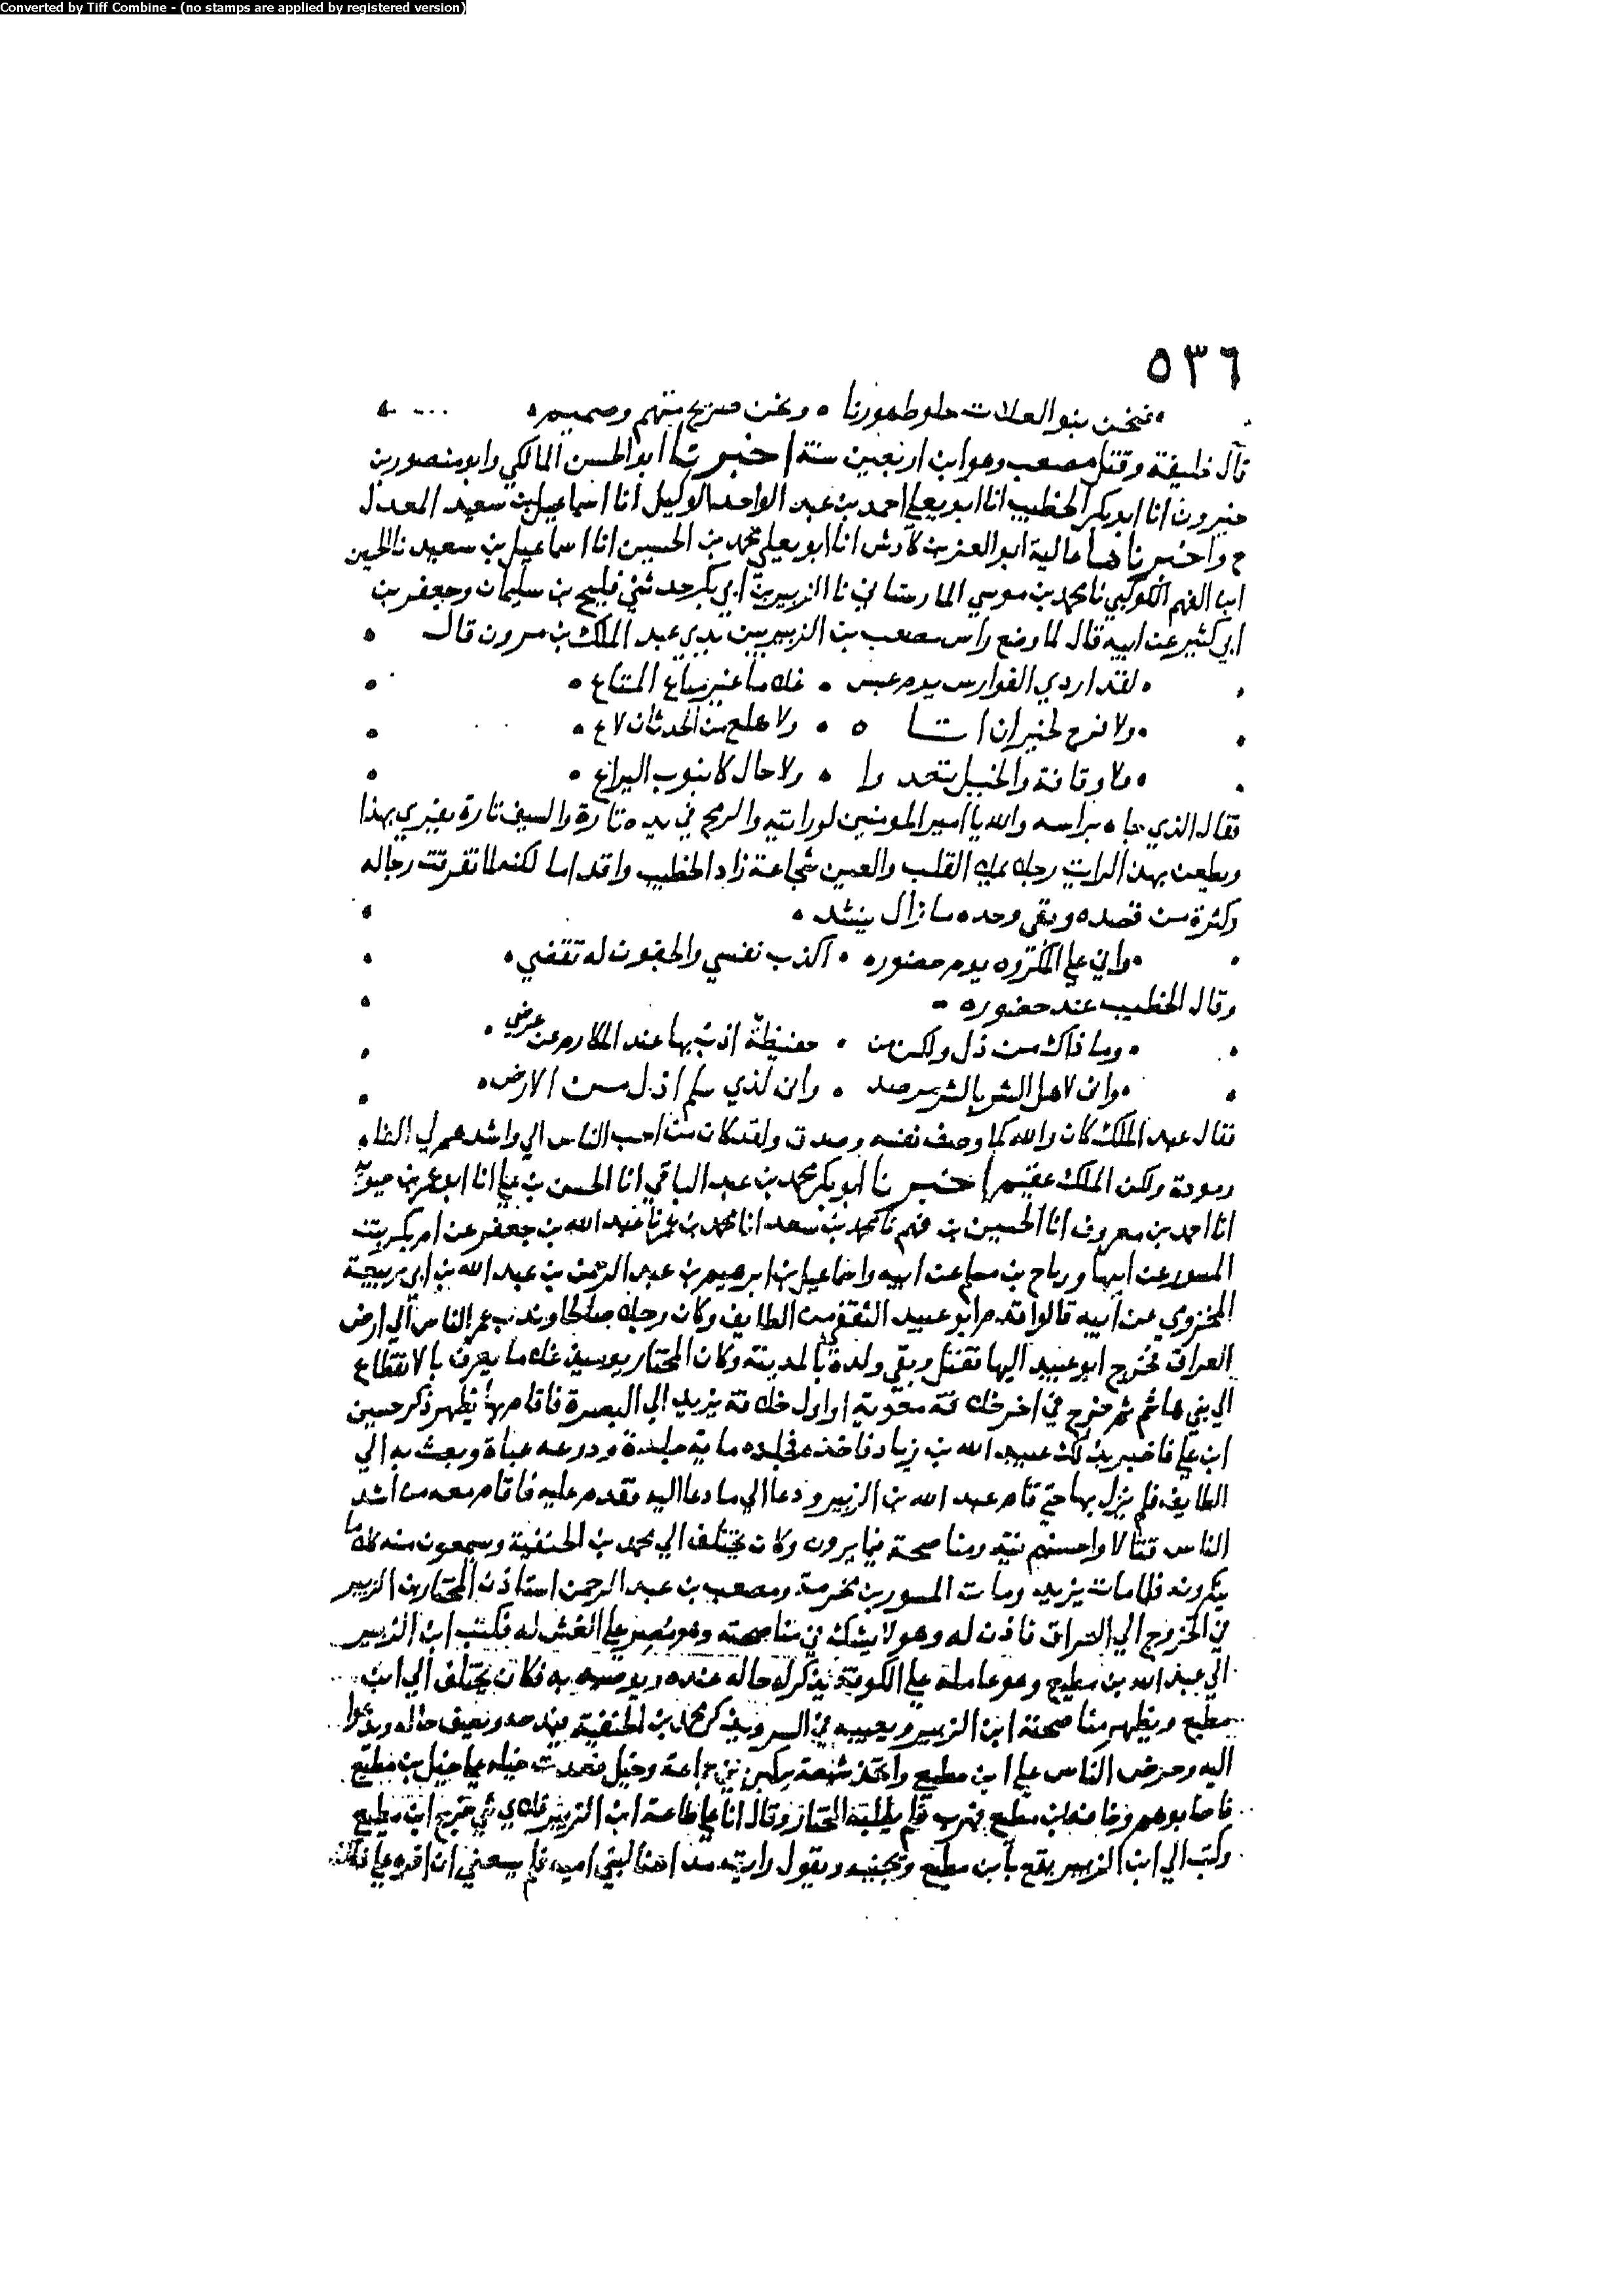 Converted by Tiff Combine - (no stamps are applied by registered version)
٥٣٦
فنحن بنو العلات حلو طهورنا ونحن صريح منهم وصميم
قال خليفة وقتل مصعب وهو ابن اربعين سنة اخبرنا ابو الحسن المالكي وابو منصور بن
خيرون انا ابو بكر الخطيب انا ابو يعلي احمد بن عبد الواحد الوكيل انا اسماعيل بن سعيد المعدل
ح واخبرنا بها عالية ابو العز بن كادش انا ابو يعلي محمد بن الحسين انا اسماعيل بن سعيد نا الحسين
ابن الفهم الكوكبي نا محمد بن موسي المارستاني نا الزبير بن ابي بكر حدثني فليح بن سليمان وجعفر بن
ابي كثير عن ابيه قال لما وضع راس مصعب بن الزبير بين يدي عبد الملك بن مرون قال
لقد اردي الفوارس يوم عبس غلاما غير مناع المتاع
ولا فرح لخير ان اتاه ولا هلع من الحدثان لاع
ولا وقافة والخيل تعدوا ولا خال كانبوب اليراع
فقال الذي جاه براسه والله يا امير المومنين لو رايته والرمح في يده تارة والسيف تارة يفري بهذا
ويطعن بهذا لرايت رجلا يملا القلب والعين شجاعة زاد الخطيب واقداما لكنه لما تفرقت رجاله
وكثرة من قصده وبقي وحده ما زال ينشد
واني علي المكروه يوم حضوره اكذب نفسي والجفون له تقضي
وقال الخطيب عند حضوره
وما ذاك من ذل ولكن من حفيظة اذب بها عند المكارم عن عرضي
وان لاهل الشر بالشر مرصد وان لذي سلم اذل من الارض
فقال عبد الملك كان والله كما وصف نفسه وصدق ولقد كان من احب الناس الي واشدهم لي الفا
ومودة ولكن الملك عقيم اخبرنا ابو بكر محمد بن عبد الباقي انا الحسن بن علي انا ابو عمر بن حيويه
انا احمد بن معروف انا الحسين بن فهم نا محمد بن سعد انا محمد بن عمر نا عبد الله بن جعفر عن ام بكر بنت
المسور عن ابيها ورباح بن مسلم عن ابيه واسماعيل بن ابرهيم بن عبد الرحمن بن عبد الله بن ابي ربيعة
المخزومي عن ابيه قالوا قدم ابو عبيد الثقفي من الطايف وكان رجلا صالحا وندب عمر الناس الي ارض
العراق فخرج ابو عبيد اليها فقتل وبقي ولده بالمدينة وكان المختار يوميذ غلاما يعرف بالانقطاع
الي بني هاشم ثم خرج في اخر خلافة معوية او اول خلافة يزيد الي البصرة فاقام بها يظهر ذكر حسين
ابن علي فاخبر بذلك عبيد الله بن زياد فاخذه فجلده ماية جلدة ودرعه عباة وبعث به الي
الطايف فلم يزل بها حتي قام عبد الله بن الزبير ودعا الي ما دعا اليه فقدم عليه فاقام معه من اشد
الناس قتالا واحسنهم نية ومناصحة فيما يرون وكان يختلف الي محمد بن الحنفية ويسمعون منه كلاما
ينكرونه فلما مات يزيد ومات المسور بن مخرمة ومصعب بن عبد الرحمن استاذن المختار بن الزبير
في الخروج الي العراق فاذن له وهو لا يشك في مناصحته وهو مصر علي الغش له فكتب ابن الزبير
الي عبد الله بن مطيع وهو عامله علي الكوفة يذكر له حاله عنده ويوصيه به فكان يختلف الي ابن
مطيع ويظهر مناصحة ابن الزبير ويعيبه في السر ويذكر محمد بن الحنفية فيمدحه ويصف حاله ويدعوا
اليه وحرض الناس علي ابن مطيع واتخذ شيعة يركب في جماعة وخيل فعدت خيله علي خيل بن مطيع
فاصابوهم وخافه ابن مطيع فهرب فلم يطلبه المختار وقال انا علي طاعة ابن الزبير فلاي شي خرج ابن مطيع
وكتب الي ابن الزبير يقع بابن مطيع ويجبنه ويقول رايته مداهنا لبني امية فلم يسعني ان اقره علي ذلك